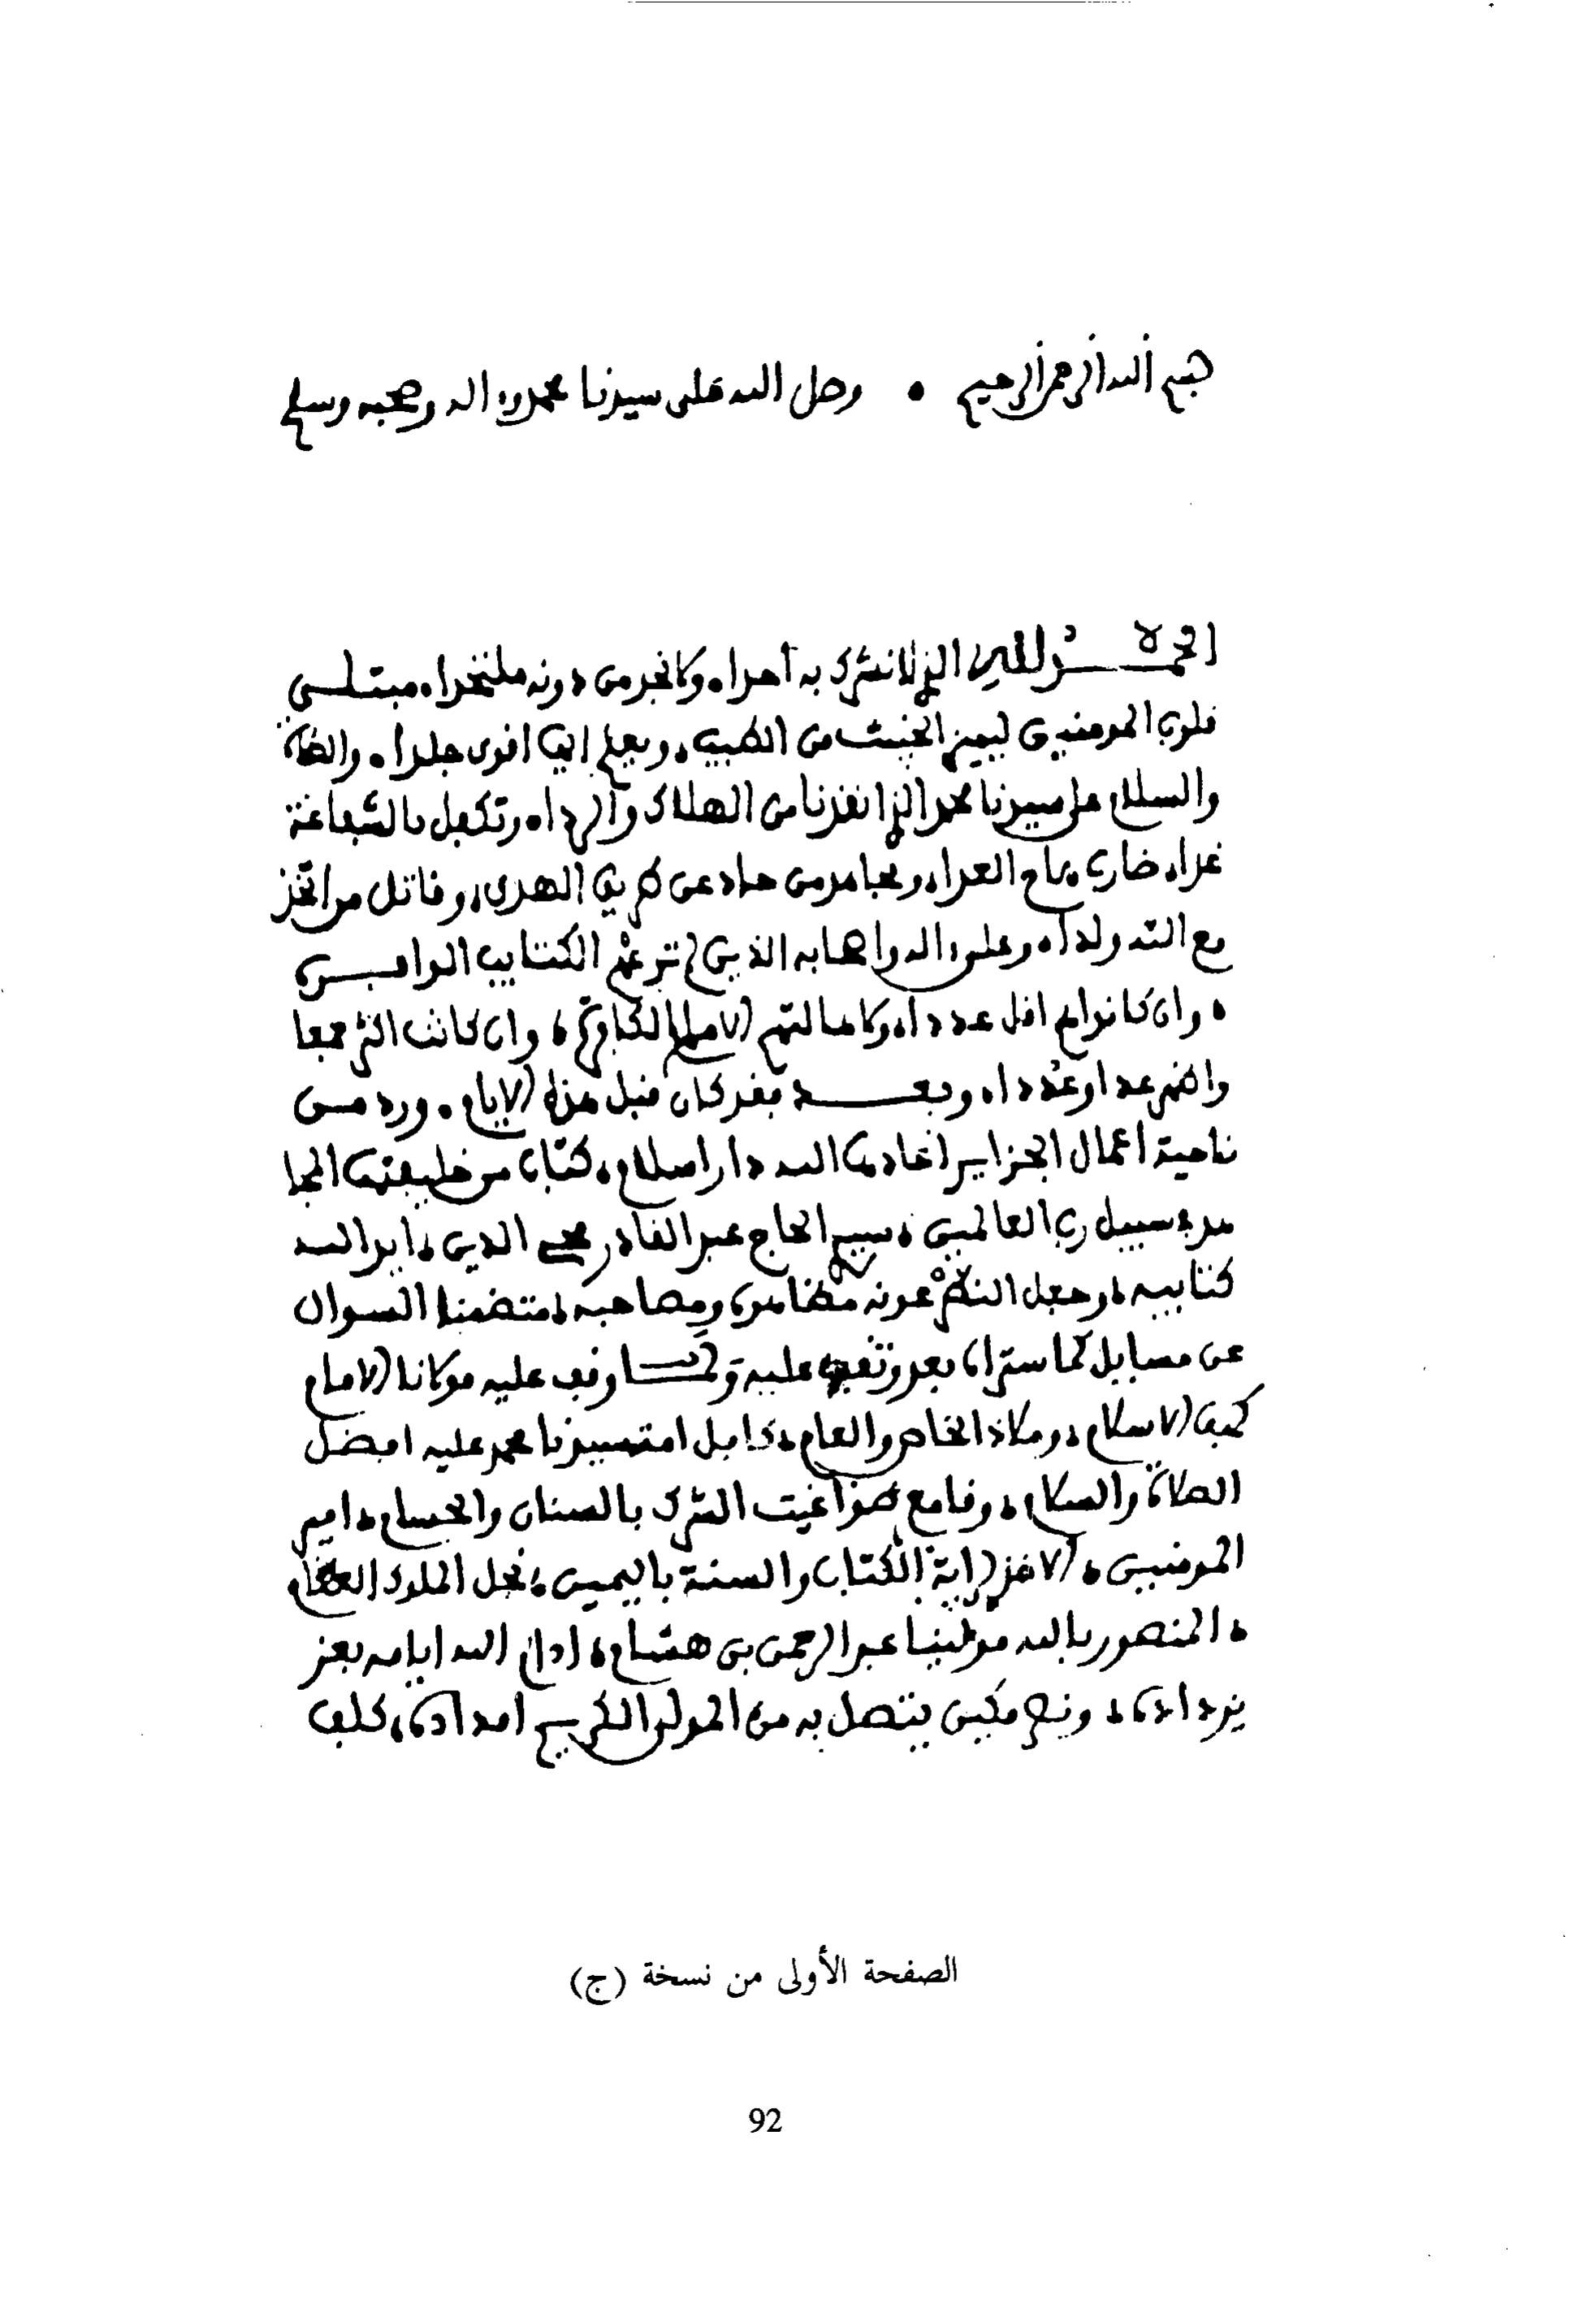 بسم الله الرحمن الرحيم • وصلى الله على سيدنا محمد وءاله وصحبه وسلم
الحمد لله الذي لا نشرك به أحدا • ولا نجد من دونه ملتحدا • مبتلي
قلوب المومنين ليميز الخبيث من الطيب، ويعلم أيها أقوى جلدا • والصلاة
والسلام على سيدنا محمد الذي أنقذنا من الهلاك والردا • وتكفل بالشفاعة
غدا، ضارب هام العدا، ومجاهد من حاد عن طريق الهدى، وقاتل من اتخذ
مع الله ولدا • وعلى ءاله وأصحابه الذين لم ترعهم الكتايب الوافرة
• وان كانوا هم اقل عددا، ولا هالتهم الامم الكافرة • وان كانت اكثر جمعا
واظهر عدا وعددا • وبعد فقد كان قبل هذه الايام • ورد من
ناحية اعمال الجزاير اعادها الله دار اسلام، كتاب من خليفتها المجا
هد في سبيل رب العالمين • سيدي الحاج عبد القادر محيي الدين • ايد الله
كتايبه، وجعل النصر عونه مظاهره ومصاحبه، متضمنا السوال
عن مسايل كما ستراه بعد وتقف عليه ولما وقف عليه مولانا الامام
كهف الاسلام، وملاذ الخاص والعام، كافل امة سيدنا محمد عليه افضل
الصلاة والسلام، وقامع طواغيت الشرك بالسنان والحسام، امير
المومنين • الاخذ راية الكتاب والسنة باليمين، نجل الملوك العظام
• المنصور بالله مولينا عبد الرحمن بن هشام، ادام الله ايامه بعز
يزداد، ونصر مكين يتصل به من المولى الكريم امداده، كلف
الصفحة الأولى من نسخة (ج)
92